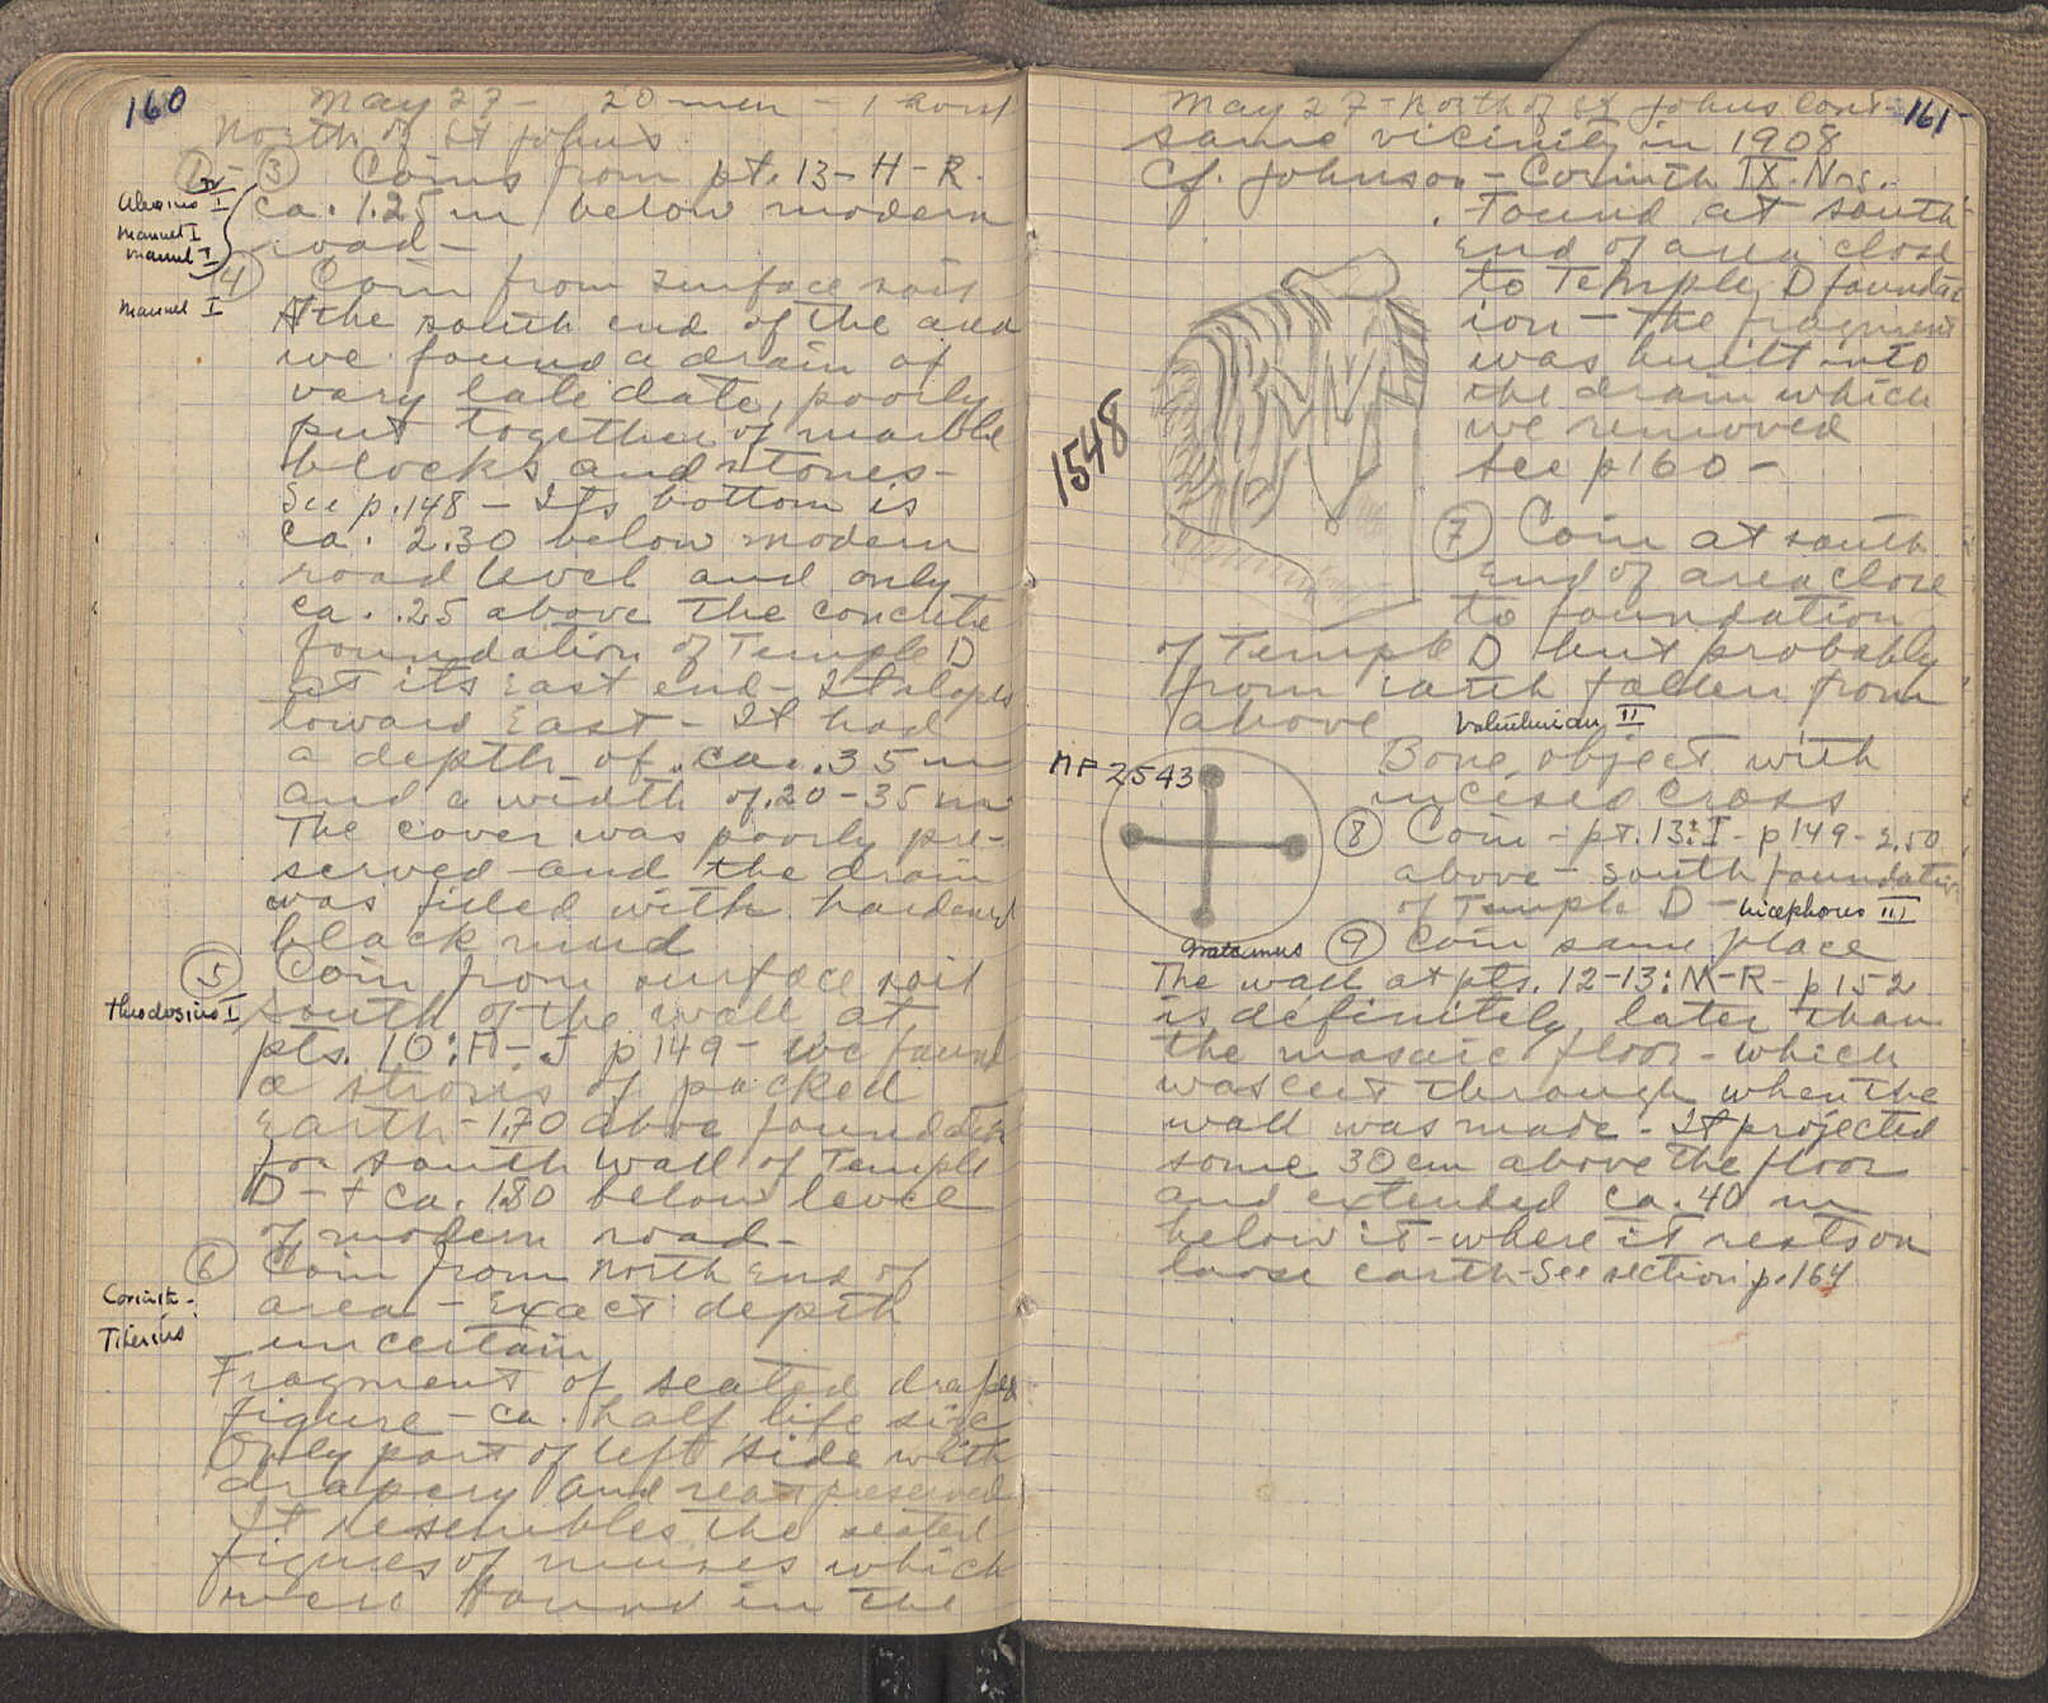 160
May 27 - 20 men - 1 horse
North of St Johns
1 - 3 Coins from pt. 13-H-R.
Alexius I
Manuel I
Manuel I
ca. 1.25 m below modern
road -
4 Coin from surface soil
Manuel I
At the south end of the area
we found a drain of
vary late date, poorly
put together of marble
blocks and stones -
See p. 148 - Its bottom is
ca. 2.30 below modern
road level and only
ca. .25 above the concrete
foundation of Temple D
at its East end - It slopes
toward East - It had
a depth of ca. .35 m
and a width of .20 - 35 m
The cover was poorly pre-
served and the drain
was filled with hardened
black mud
5 Coin from surface soil
Theodosius I
South of the wall at
pts. 10:H-J p 149 - we found
a strosis of packed
Earth - 1.70 above foundation
for south wall of Temple
D - + ca. 1.80 below level
of modern road -
6 Coin from North End of
Corinth -
Tiberius
area - Exact depth
uncertain
Fragment of seated draped
figure - ca. half life size
Only part of left side with
drapery and seat preserved
It resembles the seated
figures of muses which
were found in the
161
May 27 - North of St Johns cont -
same vicinity in 1908
Cf. Johnson - Corinth IX. Nos.
. Found at south
End of area close
to Temple D foundat
ion - The fragment
was built into
the drain which
we removed
See p 160 -
1548
7 Coin at south
End of area close
to foundation
of Temple D but probably
from earth fallen from
above Valentinian II
MF 2543
Bone object with
incised cross
8 Coin - pt. 13:I - p 149 - 2.50
above - South foundation
of Temple D - Nicephorus III
9 Coin same place
The wall at pts. 12-13:M-R - p 152
is definitely later than
the mosaic floor - which
was cut through when the
wall was made - It projected
some 30 cm above the floor
and extended ca. 40 m
below it - where it rests on
loose earth - See section p. 164